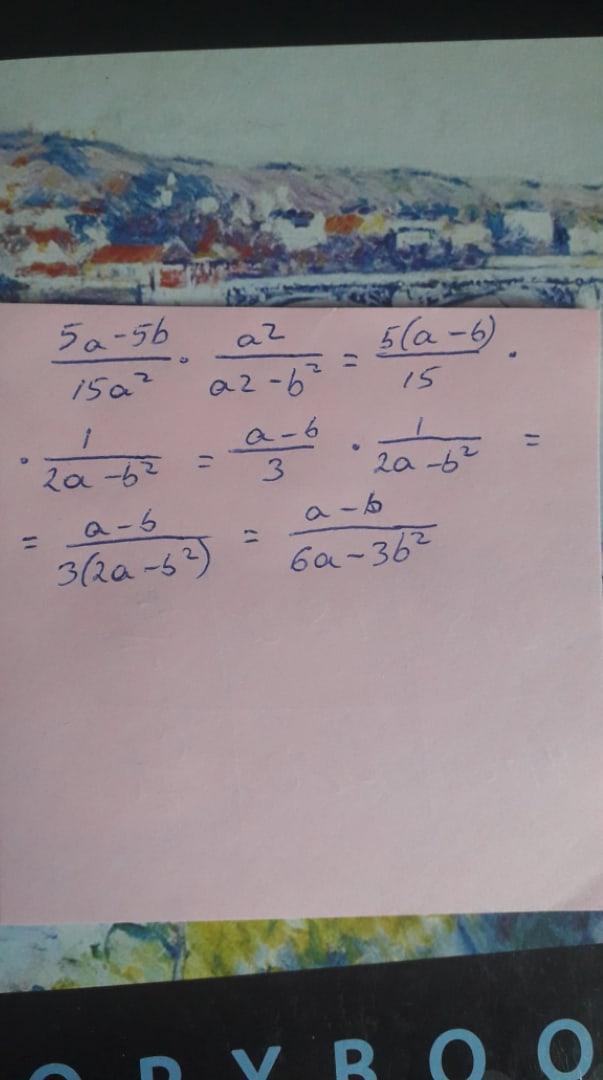 (5a-5b)/(15a²) · (a2)/(a2-b²) = (5(a-b))/(15) ·
· (1)/(2a-b²) = (a-b)/(3) · (1)/(2a-b²) =
= (a-b)/(3(2a-b²)) = (a-b)/(6a-3b²)
OPYBOO